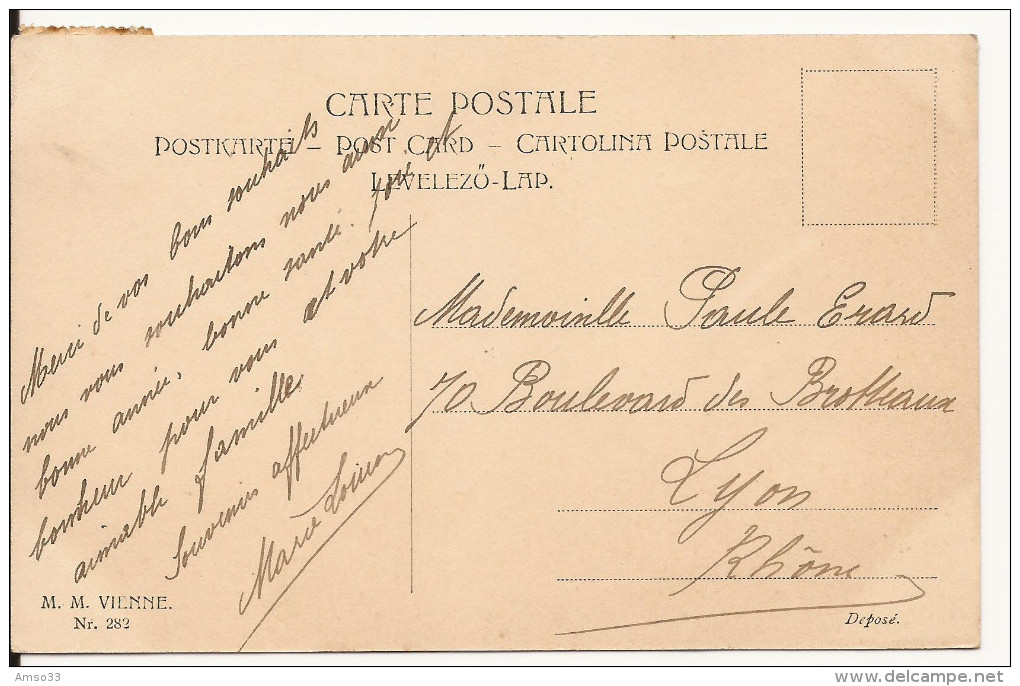 CARTE POSTALE
POSTKARTE – POST CARD – CARTOLINA POSTALE
LEVELEZŐ-LAP.
Merci de vos bons souhaits
nous vous souhaitons nous aussi
bonne année, bonne santé. joie et
bonheur pour vous et votre
aimable famille.
Souvenirs affectueux
Marie
Mademoiselle Paule Erard
70 Boulevard des Brotteaux
Lyon
Rhône
M. M. VIENNE.
Nr. 282
Deposé.
Amso33
delcampe.net